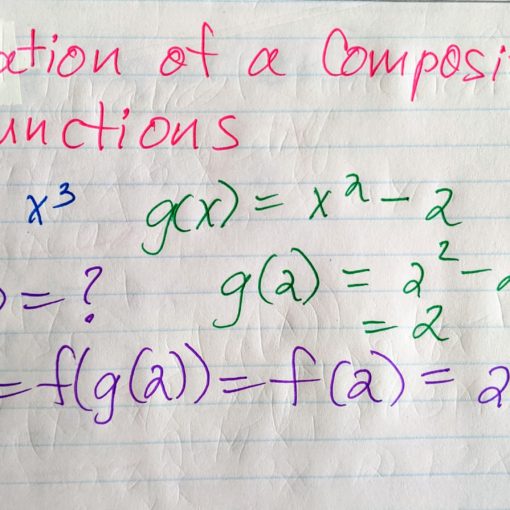 ation of a Composi
unctions
x³ g(x) = x² - 2
) = ? g(2) = 2² -
= 2
= f(g(2)) = f(2) = 2